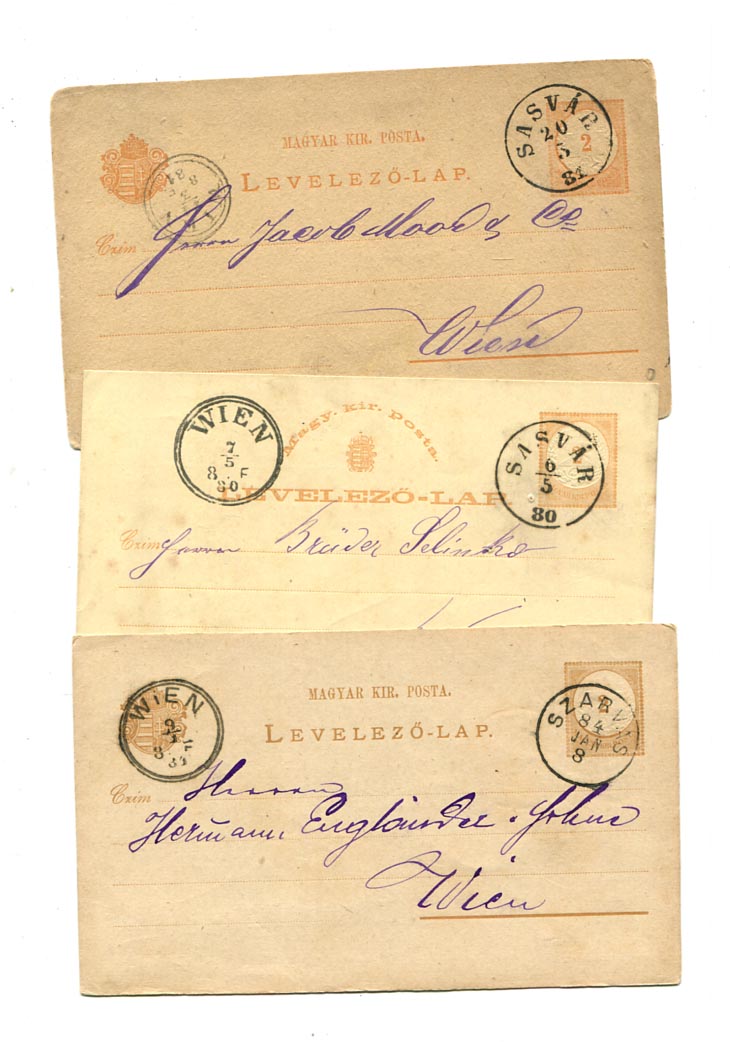 MAGYAR KIR. POSTA.
LEVELEZŐ-LAP.
2
SASVÁR
20
5
81
Czim
Herrn Jacob Mood & Co
Wien
WIEN
7
5
8 F
80
Magy. kir. posta.
LEVELEZŐ-LAP
SASVÁR
6
5
80
Czim
Herrn Brüder Selinko
WIEN
MAGYAR KIR. POSTA.
LEVELEZŐ-LAP.
SZARVAS
84
JAN
8
Czim
Herrn
Hermann Engländer & Sohne
Wien